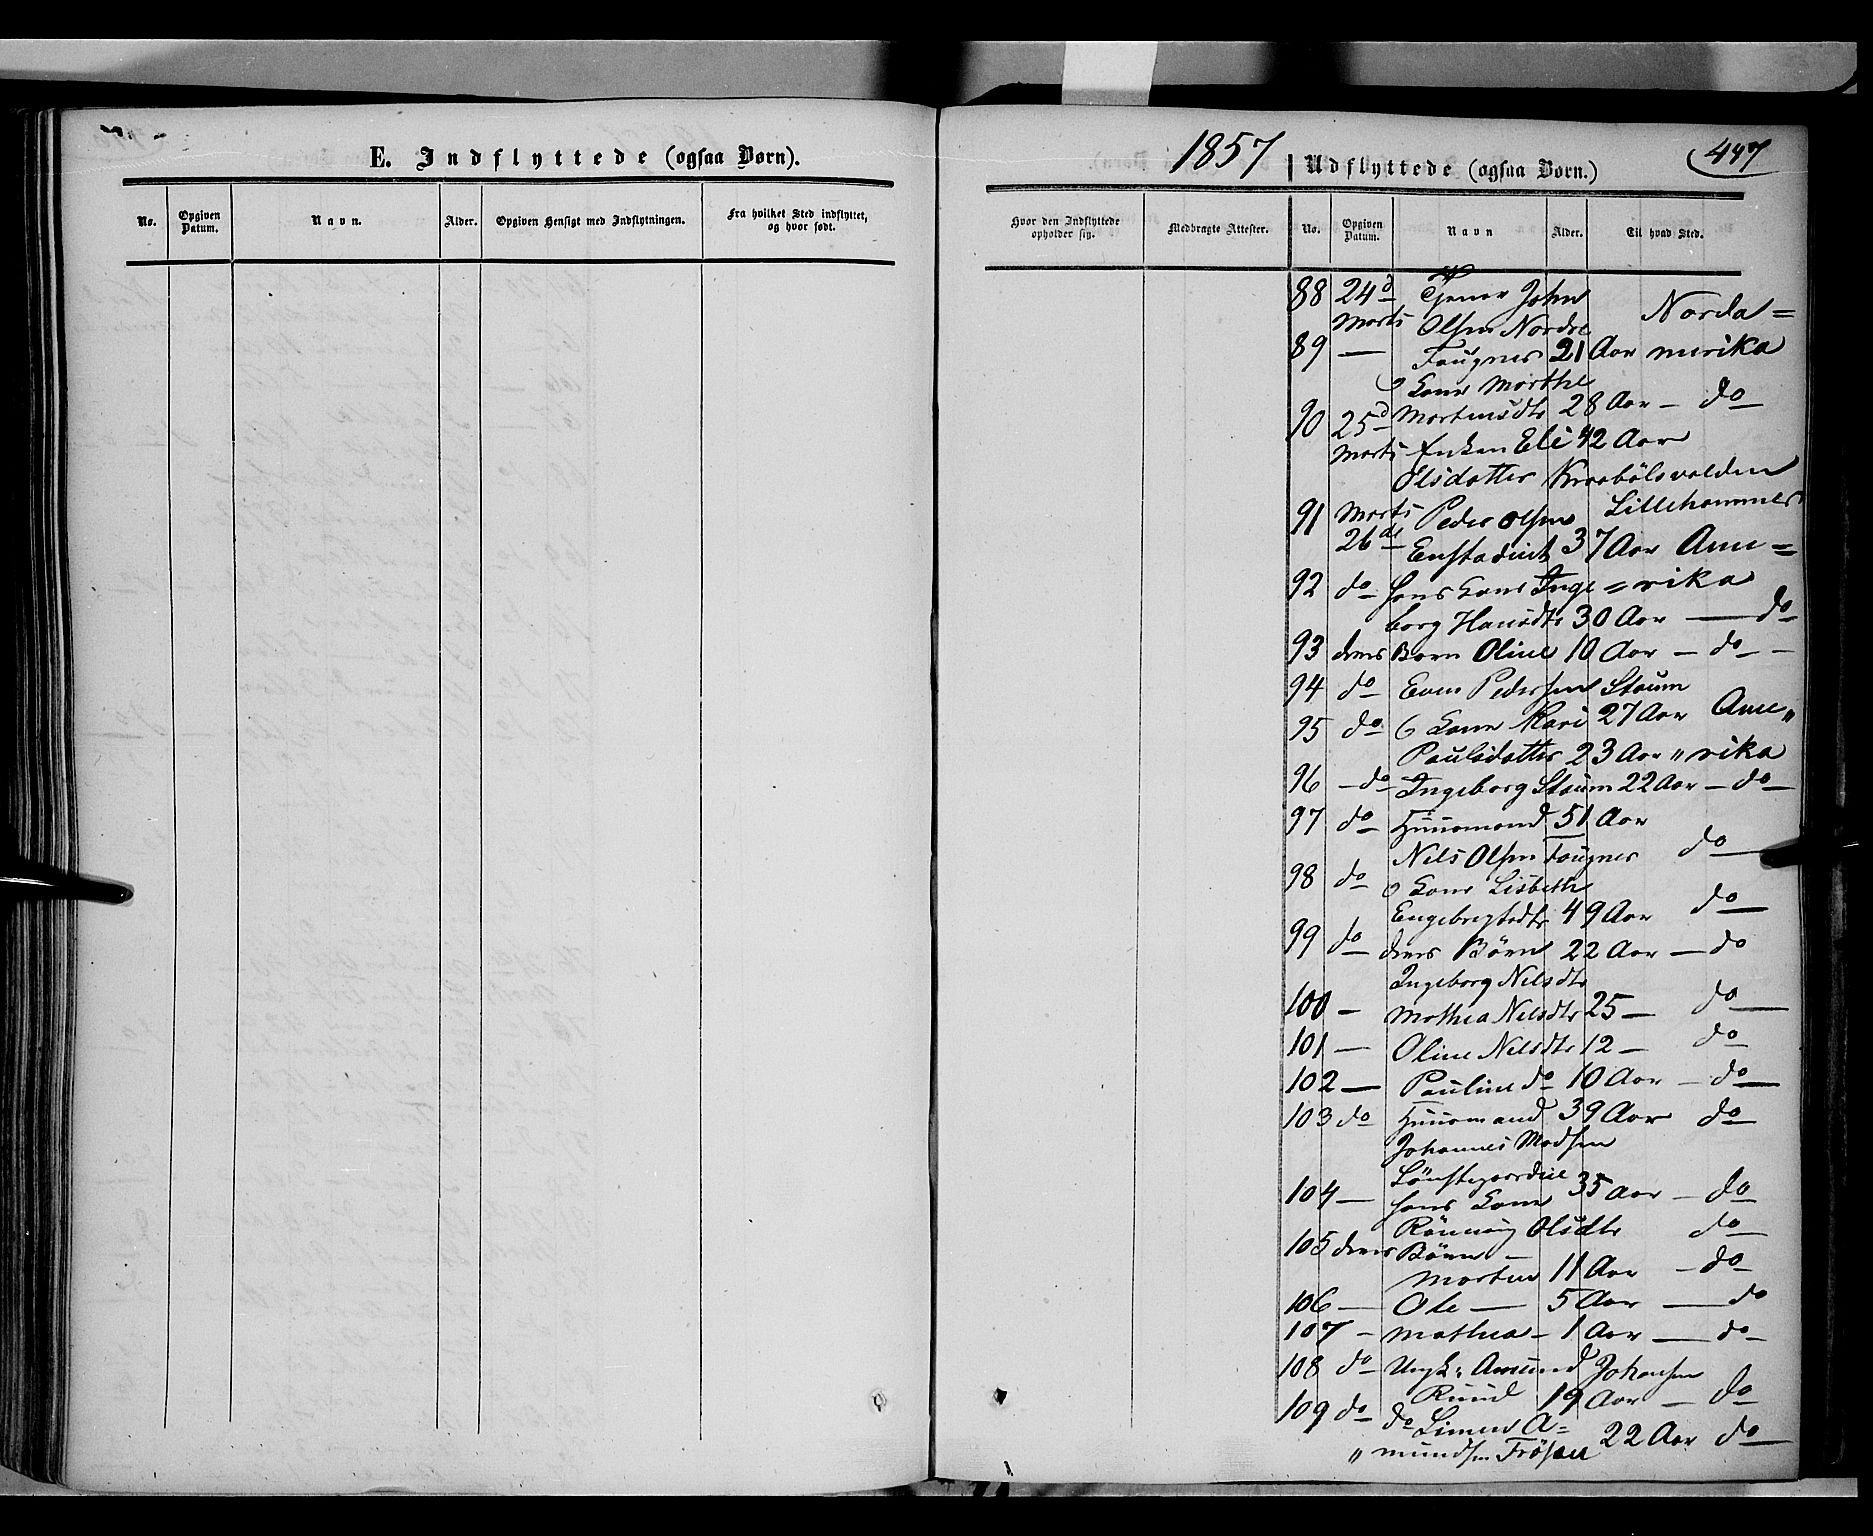 E. Indflyttede (ogsaa Børn).
No.
Opgiven Datum.
Navn.
Alder.
Opgiven Hensigt med Indflytningen.
Fra hvilket Sted indflyttet, og hvor født.
1857
Udflyttede (ogsaa Børn.)
447
Hvor den Indflyttede opholder sig.
Medbragte Attester.
No.
Opgiven Datum.
Navn
Alder.
Til hvad Sted.
88 24d Tjener John
Marts Olsen Nordre Norda=
89 — Fougner 21 Aar merika
Kone Marthe
90 25d Mortensdtr 28 Aar — do
Marts Enken Eli 42 Aar
Olsdatter Kraabølsvolden
91 Marts Peder Olsen Lillehammer
26de 37 Aar Ame=
92 do hans Kone Inge =rika
borg Hansdtr 30 Aar — do
93 deres Barn Oline 10 Aar — do —
94 do Even Pedersen Staum
95 do Kone Mari 27 Aar Ame„
Paulsdatter 23 Aar „rika
96 — do Ingeborg Staum 22 Aar — do —
97 do Huusmand 51 Aar
Nils Olsen Fougner do —
98 do Kone Lisbeth
Engebregtsdtr 49 Aar do —
99 do deres Børn 22 Aar — do
Ingeborg Nelsdtr
100 — Mathea Nelsdtr 25 — do —
101 — Oline Nelsdtr 12 — do
102 — Pauline do 10 Aar — do —
103 do Huusmand 39 Aar do
Johannes Madsen
104 — hans Kone 35 Aar — do
Rønnaug Olsdtr do
105 deres Børn —
Morten 11 Aar — do
106 — Ole — 5 Aar — do
107 — Mathea — 1 Aar — do —
108 do Ungk: Amund Johansen
Ruud 19 Aar — do
109 do do Simen A=
„mundsen Frøsen 22 Aar do —